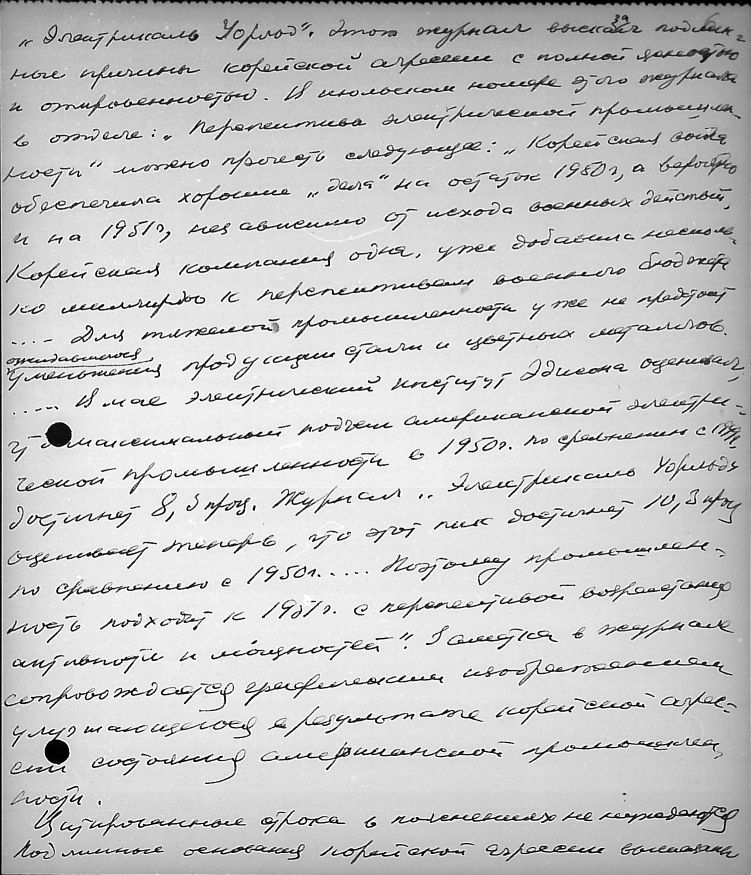 „Электрикаль Уорлд". Этот журнал выска- подлин-
за
ные причины корейской агрессии с полной ясностью
и откровенностью. В июльском номере этого журнала
в отделе: „Перспектива электрической промышлен-
ности" можно прочесть следующее: „Корейская война
обеспечила хорошие „дела" на остаток 1950г, а вероятно
и на 1951г, независимо от исхода военных действий.
Корейская компания одна, уже добавила несколь-
ко миллиардов к перспективам военного бюджета
.... Для тяжелой промышленности уже не предстоит
ожидавшегося
уменьшения продукции стали и цветных металлов.
..... В мае электрический институт Эдисона оценивал,
что максимальный подъем американской электри-
ческой промышленности в 1950г. по сравнению с 1949г.
достигнет 8,3 проц. Журнал „Электрикаль Уорльд"
оценивает теперь, что этот пик достигнет 10,3 проц
по сравнению с 1950г. .... Поэтому промышлен-
ность подходит к 1951г. с перспективой возрастания
активности и мощностей". Заметка в журнале
сопровождается графическим изображением
улучшающегося в результате корейской агрес-
сии состояния американской промышлен-
ности.
Цитированные строки в пояснениях не нуждаются
Подлинные основания корейской агрессии высказаны